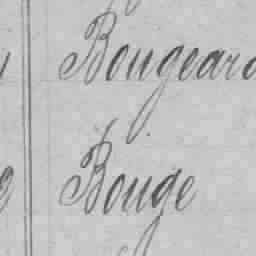 Bougeard
Bouge